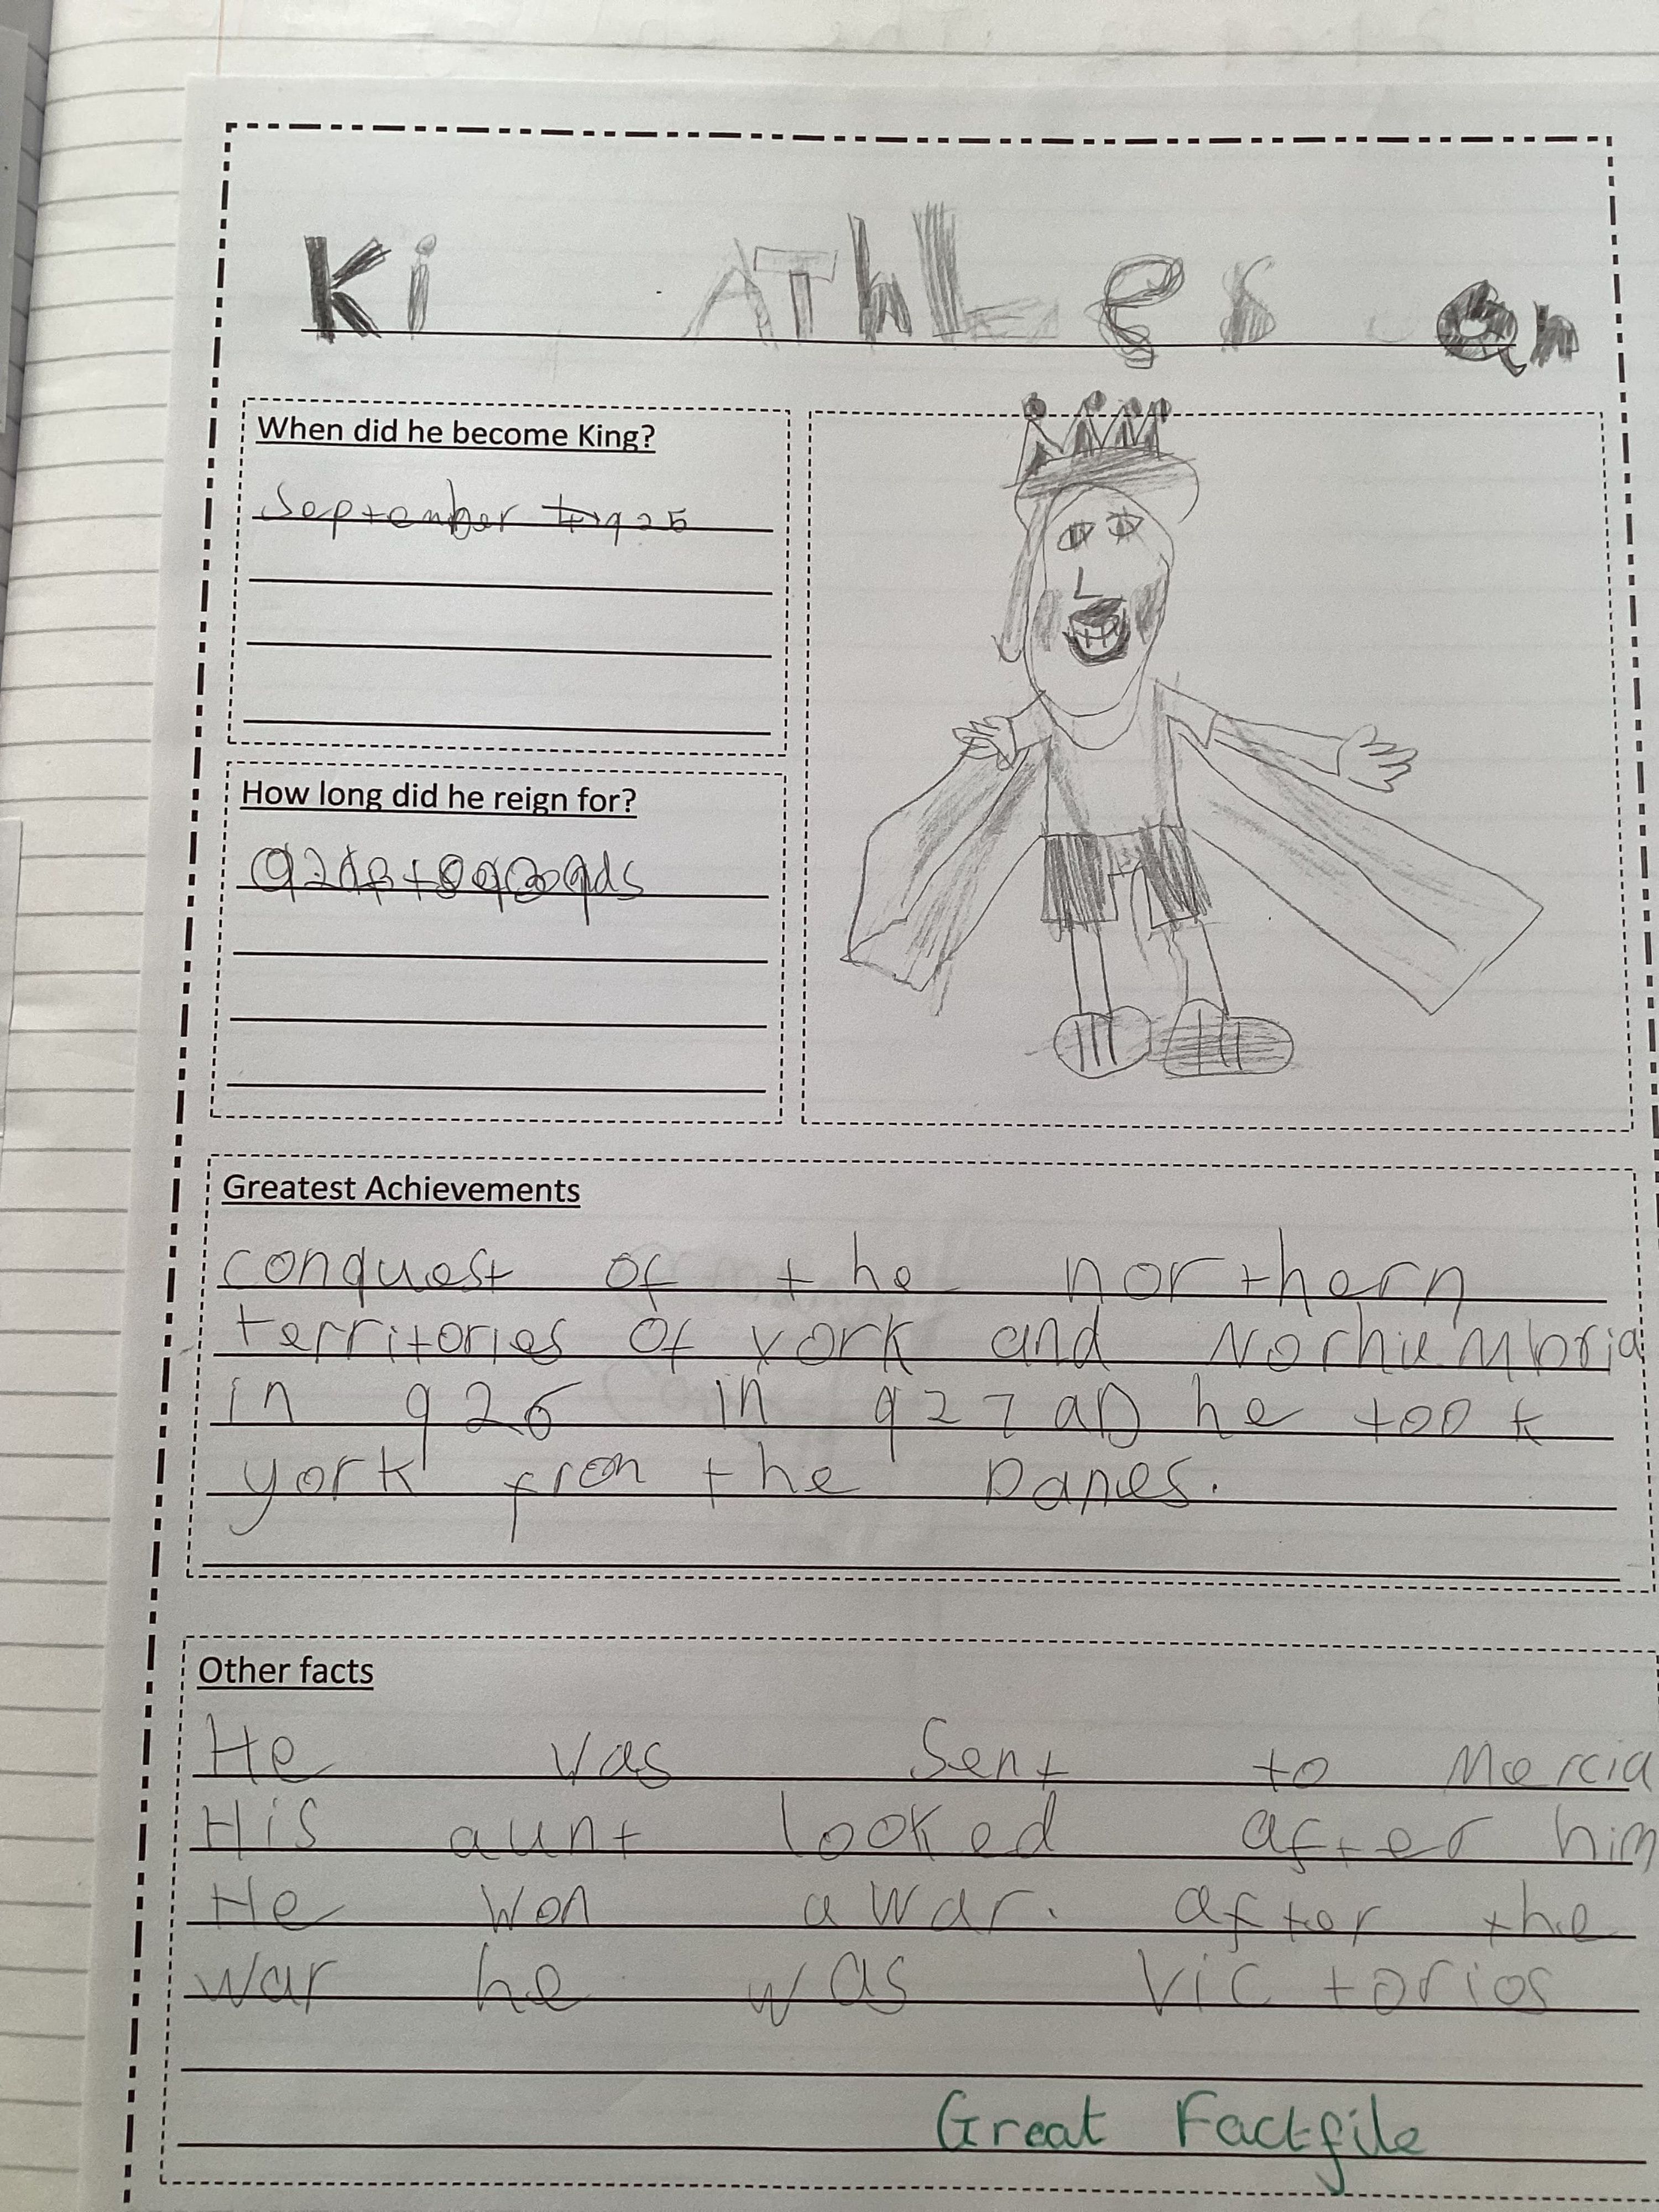 Ki AThLes an
When did he become King?
September 925
How long did he reign for?
Greatest Achievements
conquest of the northern
territories of york and Norhumbria
in 926 in 927 aD he took
york from the Danes.
Other facts
He was Sent to Mercia
His aunt looked after him
He won a war. after the
war he was Victorios
Great Factfile